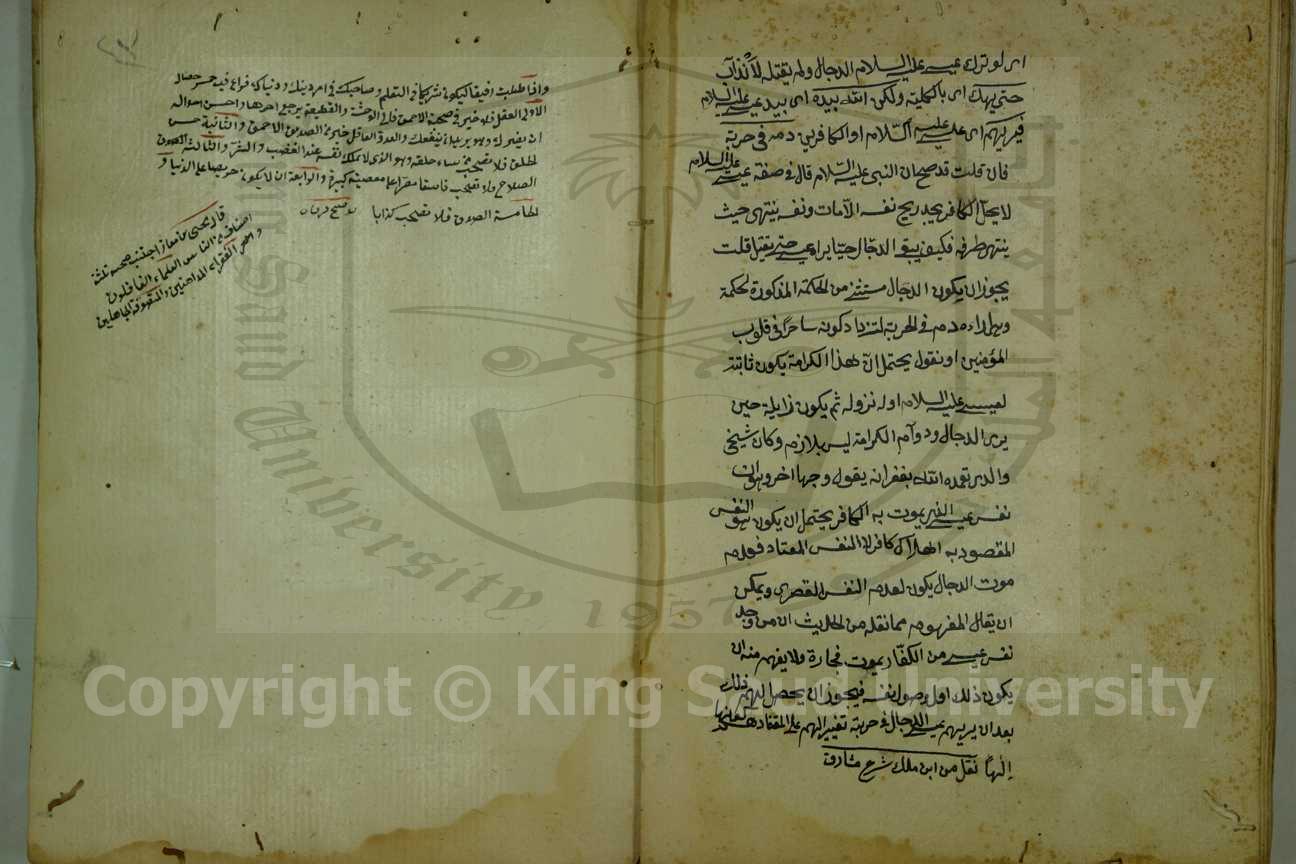 اى لو ترك عيسى عليه السلام الدجال ولم يقتله لانذاب
حتى يهلك اى بالكلية ولكن يقتله الله بيده اى بيد عيسى عليه السلام
فيريهم اى عيسى عليه السلام او الكافرين دمه فى حربة
فان قلت قد صح ان النبى عليه السلام قال فى صفة عيسى عليه السلام
لا يحل لكافر يجد ريح نفسه الا مات ونفسه ينتهى حيث
ينتهى طرفه فكيف يبقى الدجال حيا يراه عيسى حتى يقتل قلت
يجوز ان يكون الدجال مستثنى من الحكمة المذكورة لحكمة
وهى اراءة دمه فى الحربة لتزداد كونه ساحرا فى قلوب
المؤمنين او نقول يحتمل ان هذا الكرامة يكون ثابتة
لعيسى عليه السلام اول نزوله ثم يكون زايلة حين
يرى الدجال ودوام الكرامة ليس بلازم وكان شيخى
والدى تغمده الله بغفرانه يقول وجها اخر وهو ان
نفس عيسى الذى يموت به الكافر يحتمل ان يكون هو النفس
المقصود به اهلاك كافر لا النفس المعتاد فعدم
موت الدجال يكون لعدم النفس القصدى ويمكن
ان يقال المفهوم مما نقله من الحديث ان من وجد
نفس عيسى من الكفار يموت فجاءة ولا يفهم منه ان
يكون ذلك اول وصول نفسه فيجوز ان يحصل لهم ذلك
بعد ان يريهم عيسى دم الدجال فى حربة
نقل من ابن ملك شرح مشارق
واذا طلبت رفيقا ليكون شريكك فى التعلم وصاحبك فى امر دينك ودنياك فراع فيه خمس خصال
الاولى العقل فلا خير فى صحبة الاحمق فالى الوحشة والقطيعة يرجع اخرها واحسن احواله
ان يضرك وهو يريد ان ينفعك والعدو العاقل خير من الصديق الاحمق والثانية حسن
الخلق فلا تصحب من ساء خلقه وهو الذى لا يملك نفسه عند الغضب والشهوة والثالثة
الصلاح فلا تصحب فاسقا مصرا على معصية كبيرة والرابعة ان لا يكون حريصا على الدنيا و
الخامسة الصدق فلا تصحب كذابا
قال يحيى بن معاذ اجتنب صحبة ثلثة
اصناف من الناس العلماء الغافلون
والفقراء المداهنين والمتصوفة الجاهلين
Copyright © King Saud University
King Saud University
1957